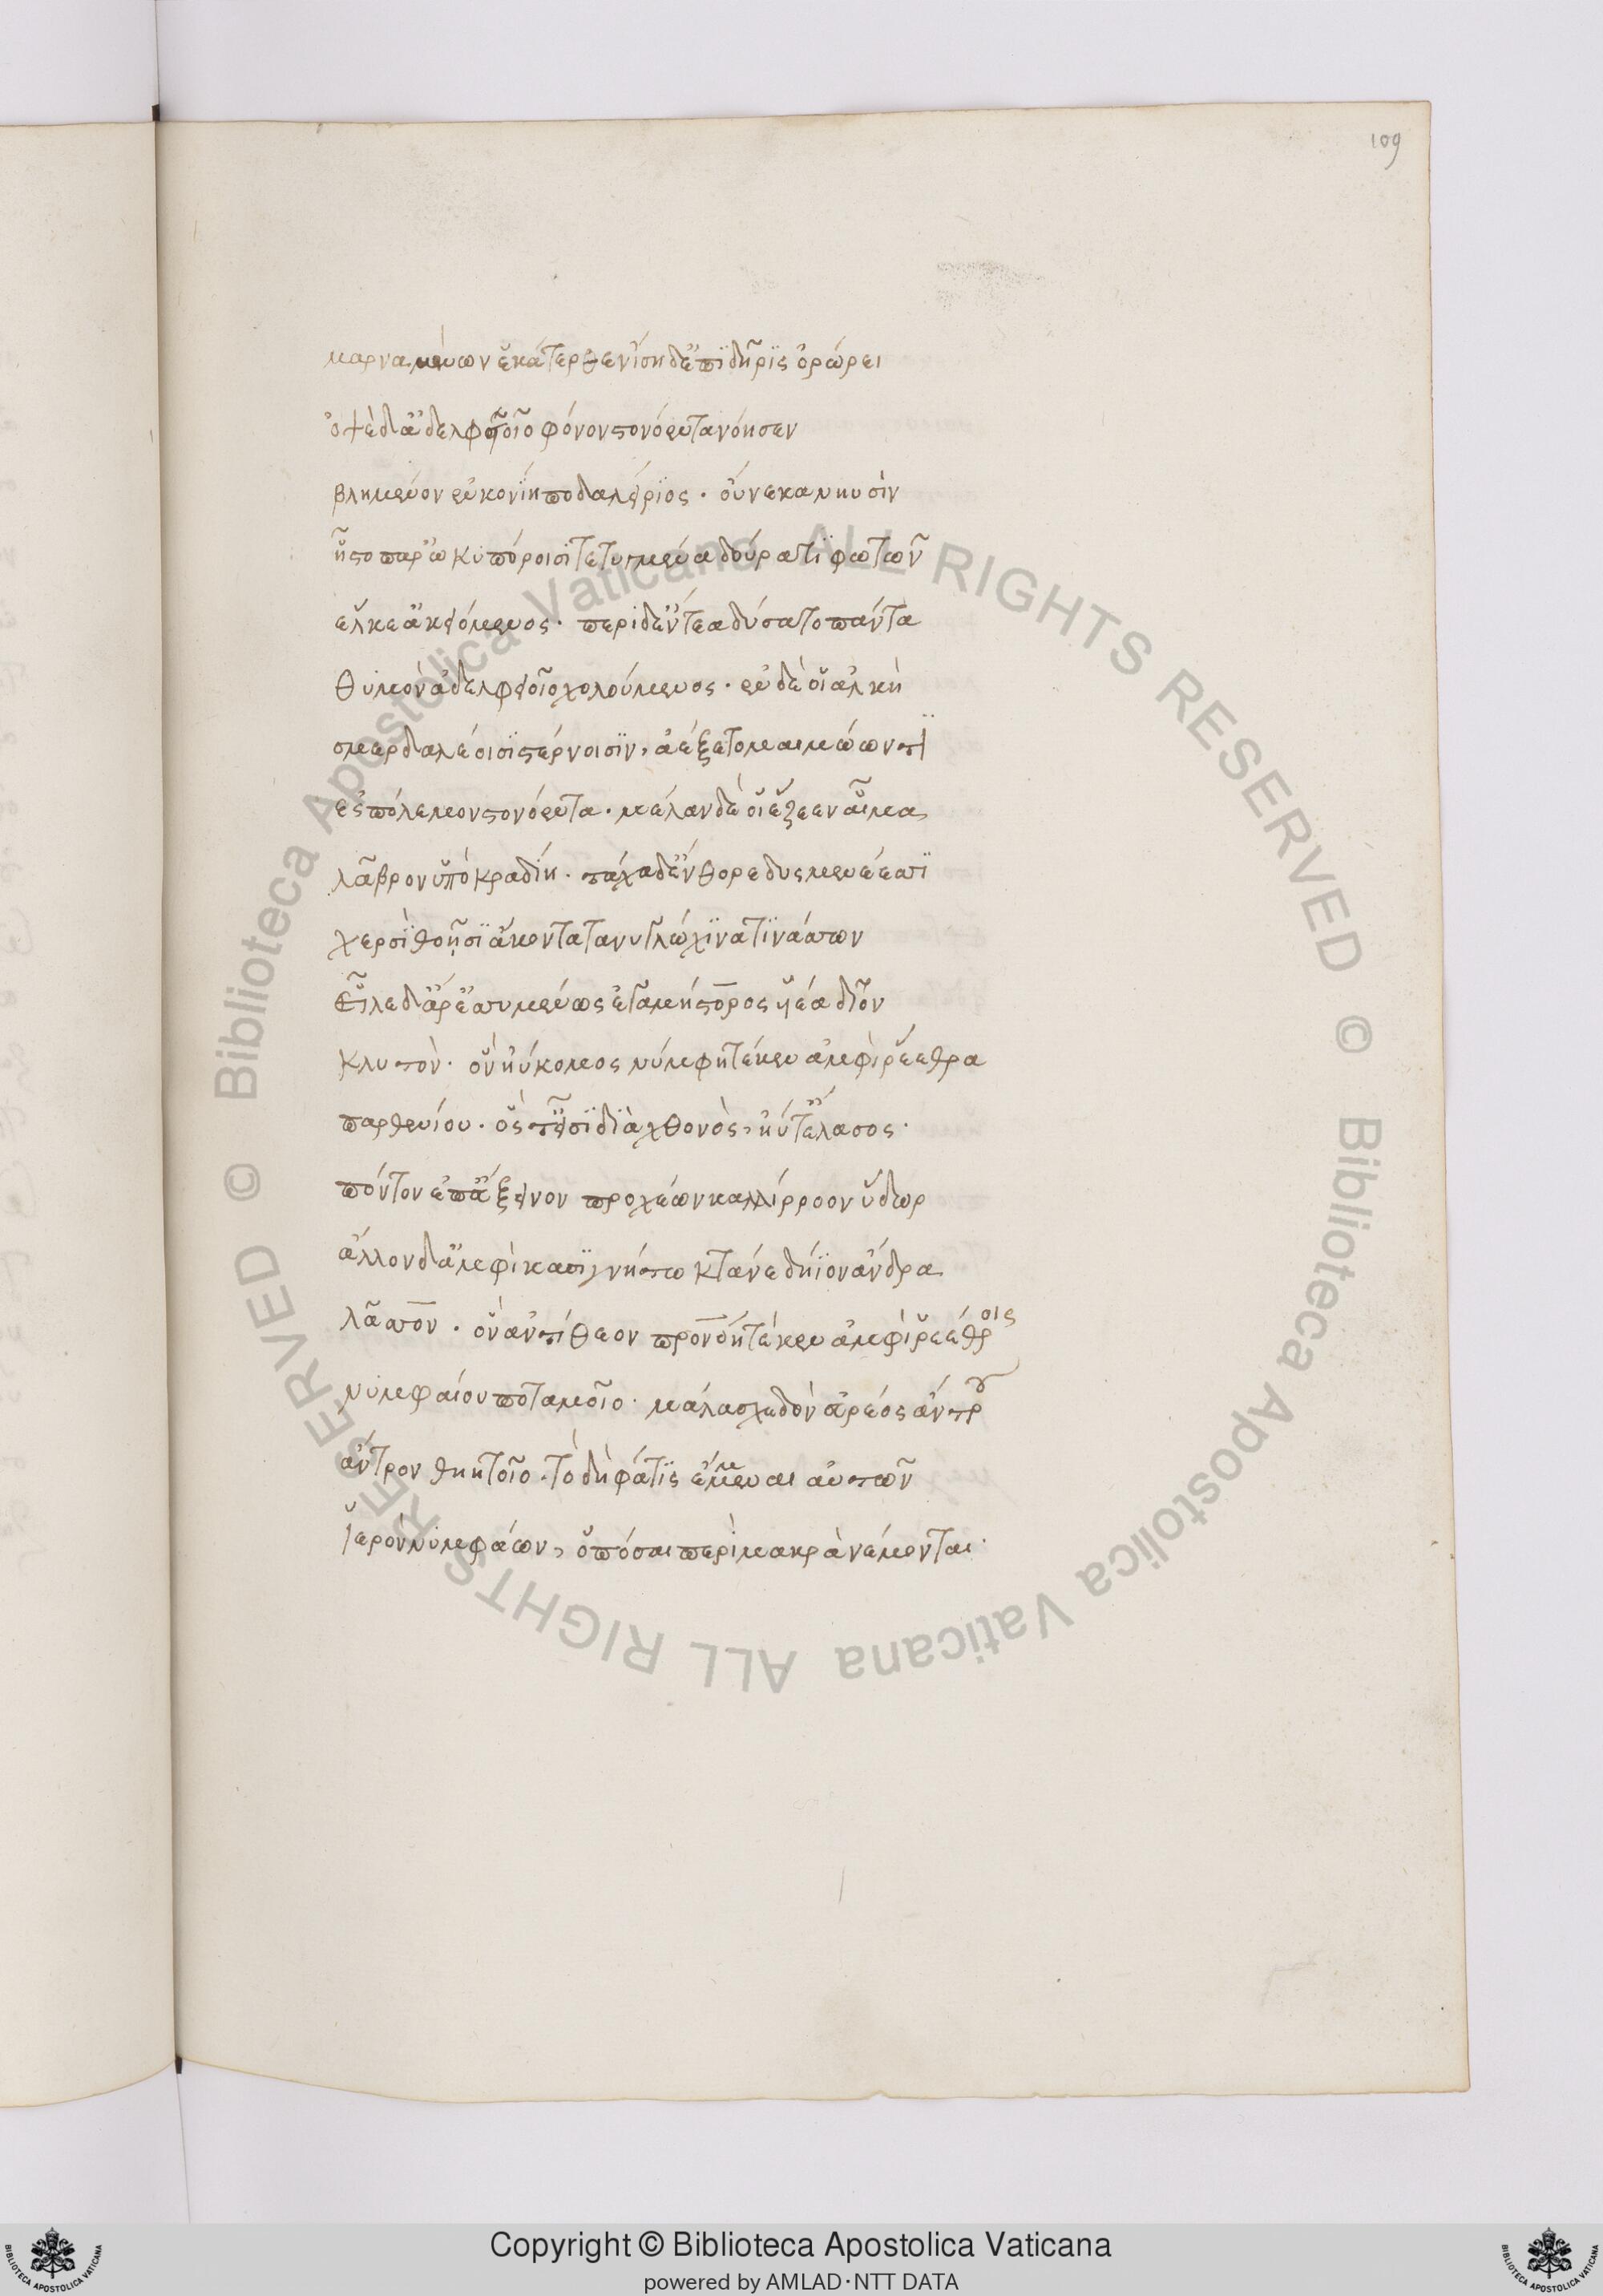 109
μαρναμένων ἑκάτερθεν ἴση δ' ἐπὶ δῆρις ὀρώρει
ὀψὲ δ' ἀδελφειοῖο φόνον στονόεντα νόησεν
βλημένον ἐν κονίη ποδαλείριος. οὕνεκα νηυσὶν
ἧστο παρ' ὠκυπόροισι τετυμμένα δούρατι φωτῶν
ἕλκε' ἀκειόμενος. περὶ δ' ἔντεα δύσατο πάντα
θυμὸν ἀδελφειοῖο χολούμενος. ἐν δὲ οἱ ἀλκὴ
σμερδαλέοισι στέρνοισιν, ἀέξετο μαιμώωντι
ἐς πόλεμον στονόεντα. μέλαν δὲ οἱ ἔζεεν αἷμα
λᾶβρον ὑπὸ κραδίη. τάχα δ' ἔνθορε δυσμενέεσσι
χερσὶ θοῇσι ἄκοντα τανυγλώχινα τινάσσων
Εἷλε δ' ἄρ' ἐσσυμένως ἀγαμήστορος υἱέα δῖον
κλυτὸν. ὃν ἠύκομος νύμφη τέκεν ἀμφὶ ῥέεθρα
παρθενίου. ὅς τ' εἶσι διὰ χθονὸς, ἠύτ' ἔλασος.
πόντον ἐπ' ἄξεινον προχέων καλλίρροον ὕδωρ
ἄλλον δ' ἀμφὶ κασιγνήτω κτάνε δήιον ἄνδρα
λᾶσσον. ὃν ἀντίθεον προνόη τέκεν ἀμφὶ ῥεέθροις
νυμφαίου ποταμοῖο. μάλα σχεδὸν ἀρέος ἄντρου
ἄντρον θηητοῖο. τὸ δὴ φάτις ἔμμεναι αὐτῶν
ἱερὸν νυμφάων, ὁπόσαι περὶ μακρὰ νέμονται.
Copyright © Biblioteca Apostolica Vaticana
powered by AMLAD·NTT DATA